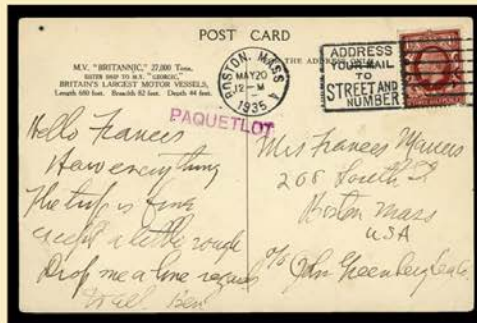 POST CARD
M.V. "BRITANNIC," 27,000 Tons.
SISTER SHIP TO M.V. "GEORGIC,"
BRITAIN'S LARGEST MOTOR VESSELS,
Length 680 feet. Breadth 82 feet. Depth 44 feet.
THE ADDRESS ONLY
BOSTON, MASS
MAY 20
12-M
1935
A
ADDRESS
YOUR MAIL
TO
STREET AND
NUMBER
PAQUETLOT
Hello Frances
How everything
The trip is fine
except a little rough
Drop me a line regards
Well Ben
Mrs Frances
208 South St
Boston Mass
USA
c/o John Greenberg